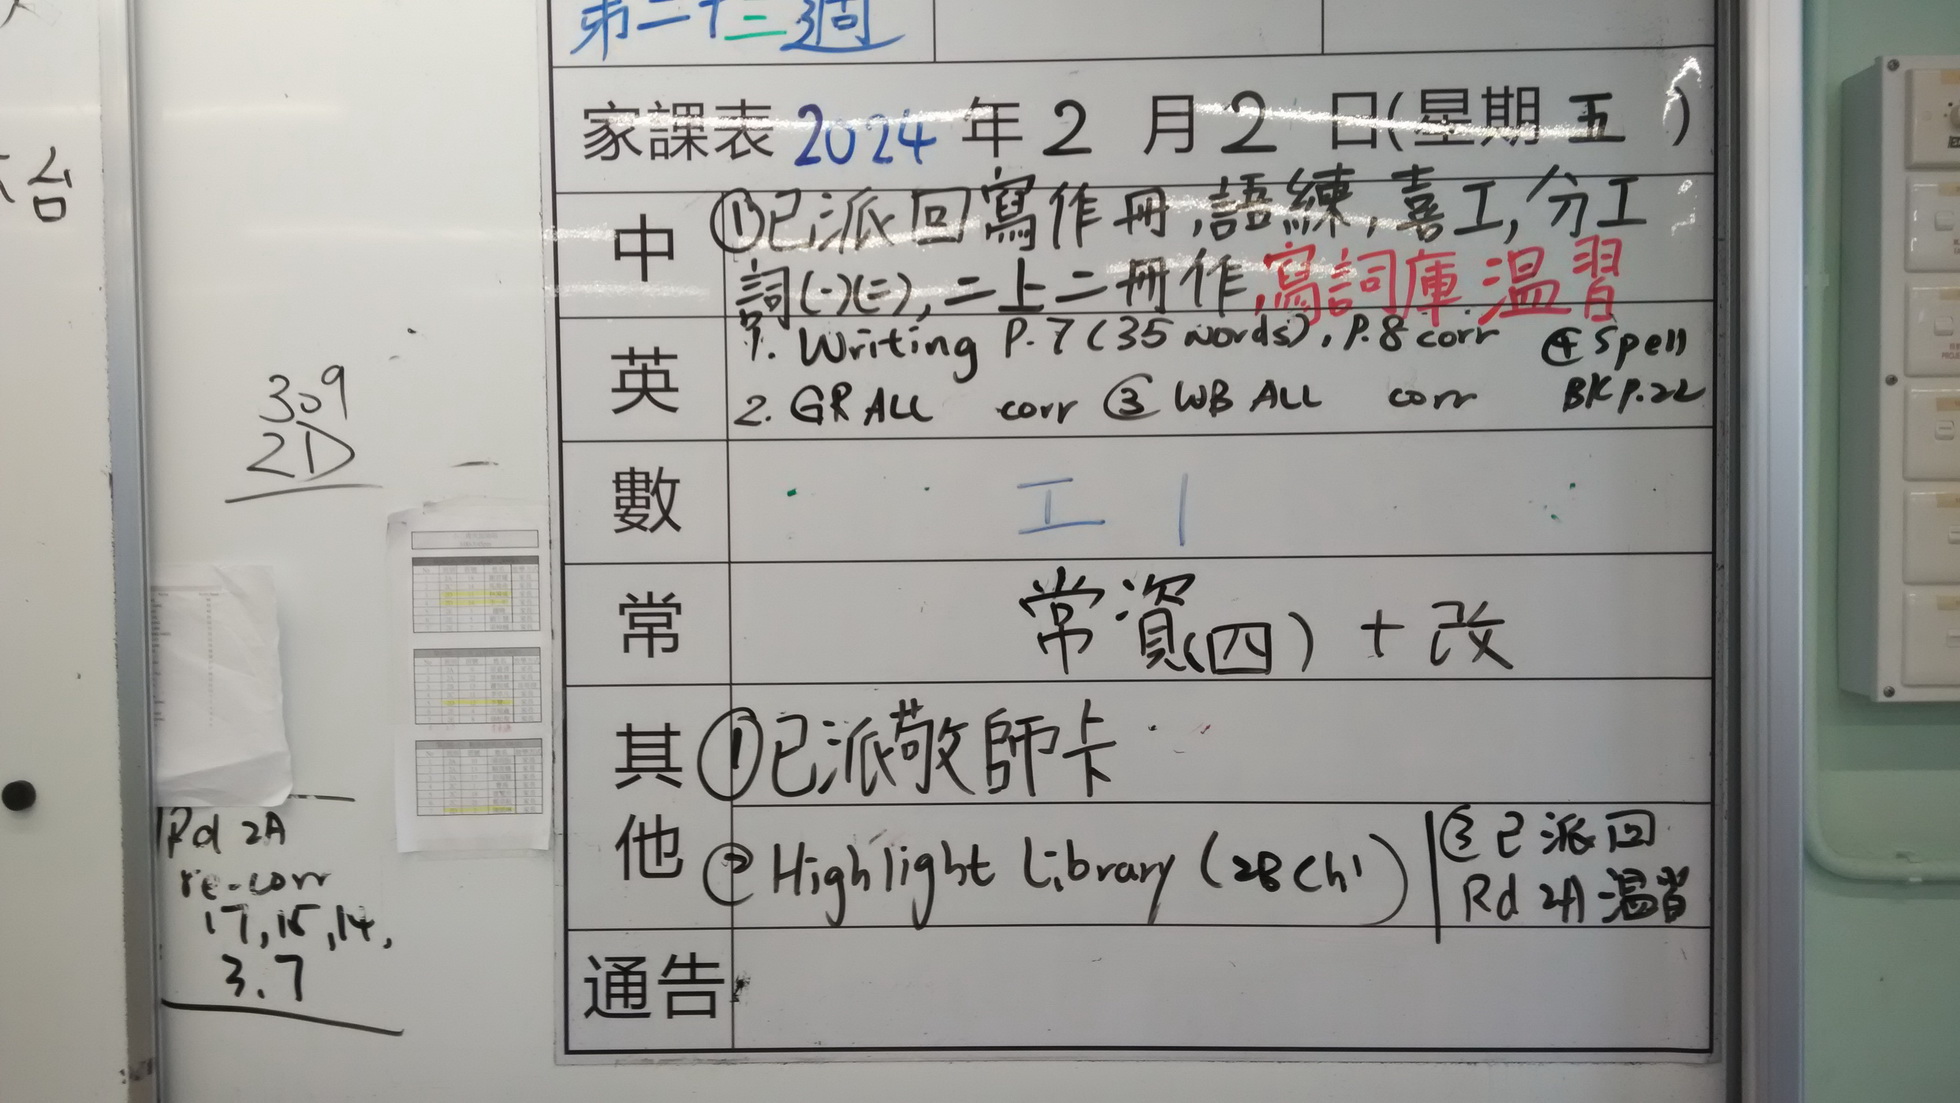 第二十三週
家課表 2024 年 2 月 2 日(星期五)
中 ①已派回寫作冊,語練,喜工,分工
詞(一)(二),二上二冊作,寫詞庫 溫習
英 1. Writing P.7 (35 words), P.8 corr ④ Spell
2. GR ALL corr ③ WB ALL corr BK P.22
數 工 |
常 常資(四) + 改
其他 ①已派敬師卡
② Highlight Library (2B Chi)
③ 已派回
Rd 2A 溫習
通告
台
309
2D
Rd 2A
re-corr
17, 15, 14,
3. 7